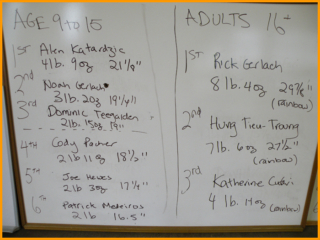 AGE 9 to 15
1ST Alen Katardzic
4lb. 9oz 21 1/8"
2nd Noah Gerlach
3lb. 2oz 19 1/4"
3rd Dominic Teegarden
2lb. 15oz. 19"
4TH Cody
2lb 11oz 18 1/2"
5TH Joe Hawes
2lb 3oz 17 1/4"
6th Patrick Medeiros
2lb 16.5"
ADULTS 16+
1ST Rick Gerlach
8 lb. 4oz 29 7/8"
(rainbow)
2nd Hung Tieu-Truong
7lb. 6oz 27 1/2"
(rainbow)
3rd Katherine
4 lb. 14oz (rainbow)